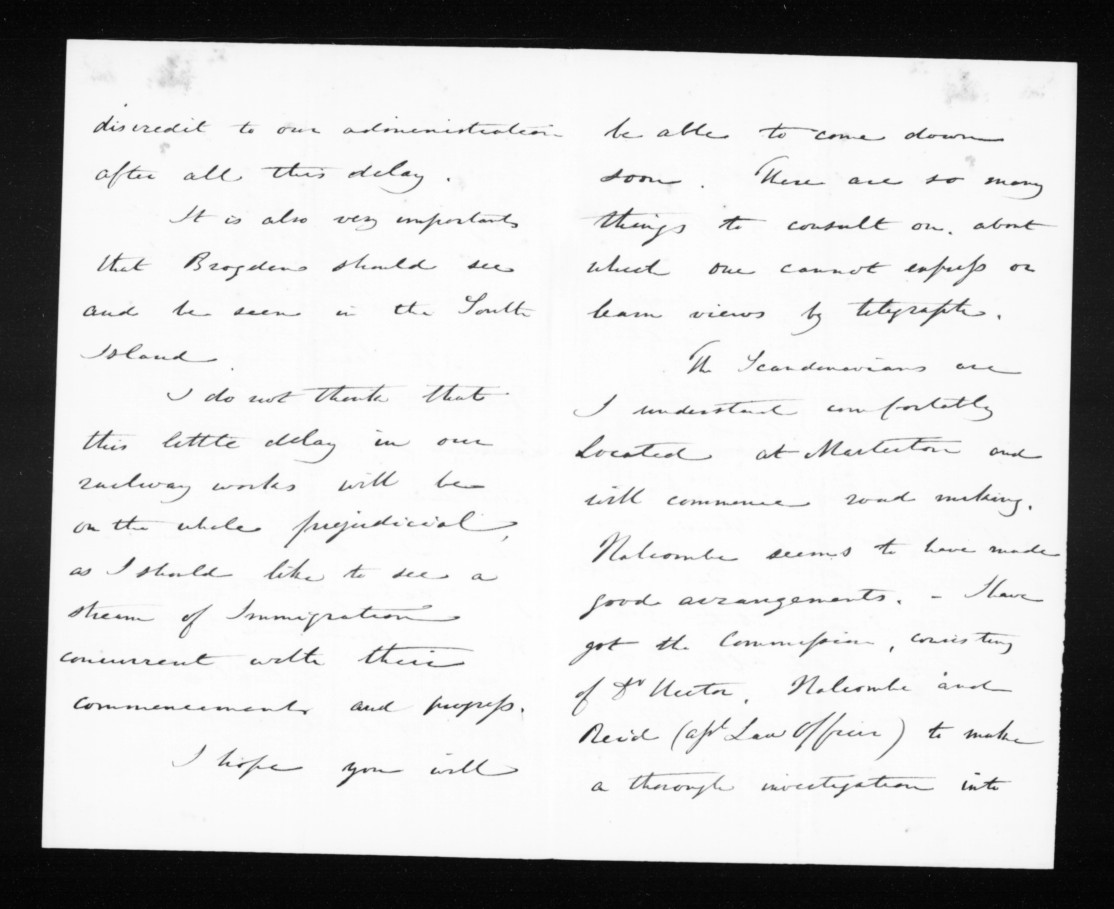 discredit to our administration
after all this delay.
It is also very important
that Brogden should see
and be seen in the South
Island.
I do not think that
this little delay in our
railway works will be
on the whole prejudicial,
as I should like to see a
stream of Immigration
concurrent with their
commencement and progress.
I hope you will
be able to come down
soon. There are so many
things to consult on. about
which one cannot express or
learn views by telegraph.
The Scandinavians are
I understand comfortably
located at Masterton and
will commence road making.
Halcombe seems to have made
good arrangements. - I have
got the Commission, consisting
of Dr Hector, Halcombe and
Reid (asst Law Officer) to make
a thorough investigation into